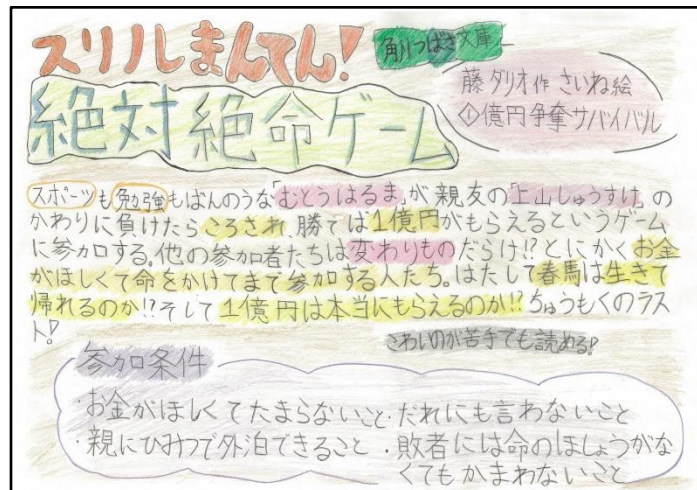 スリルまんてん!
角川つばさ文庫
絶対絶命ゲーム
藤 ダリオ作 さいね絵
①億円争奪サバイバル
スポーツも勉強もばんのうな「むとうはるま」が親友の「上山しゅうすけ」の
かわりに負けたらころされ、勝てば1億円がもらえるというゲーム
に参加する。他の参加者たちは変わりものだらけ!?とにかくお金
がほしくて命をかけてまで参加する人たち。はたして春馬は生きて
帰れるのか!?そして1億円は本当にもらえるのか!?ちゅうもくのラス
ト!
こわいのが苦手でも読める!
参加条件
・お金がほしくてたまらないこと
・だれにも言わないこと
・親にひみつで外泊できること
・敗者には命のほしょうがな
くてもかまわないこと